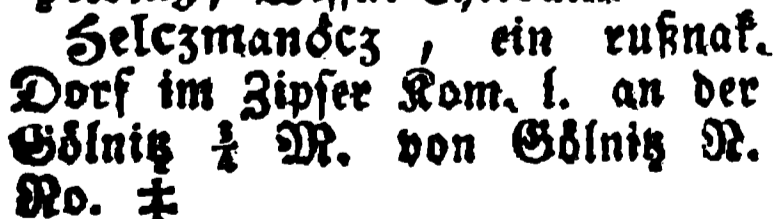 Helczmanócz, ein rußnak.
Dorf im Zipser Kom. l. an der
Gölnitz ¾ M. von Gölnitz N.
No. ‡